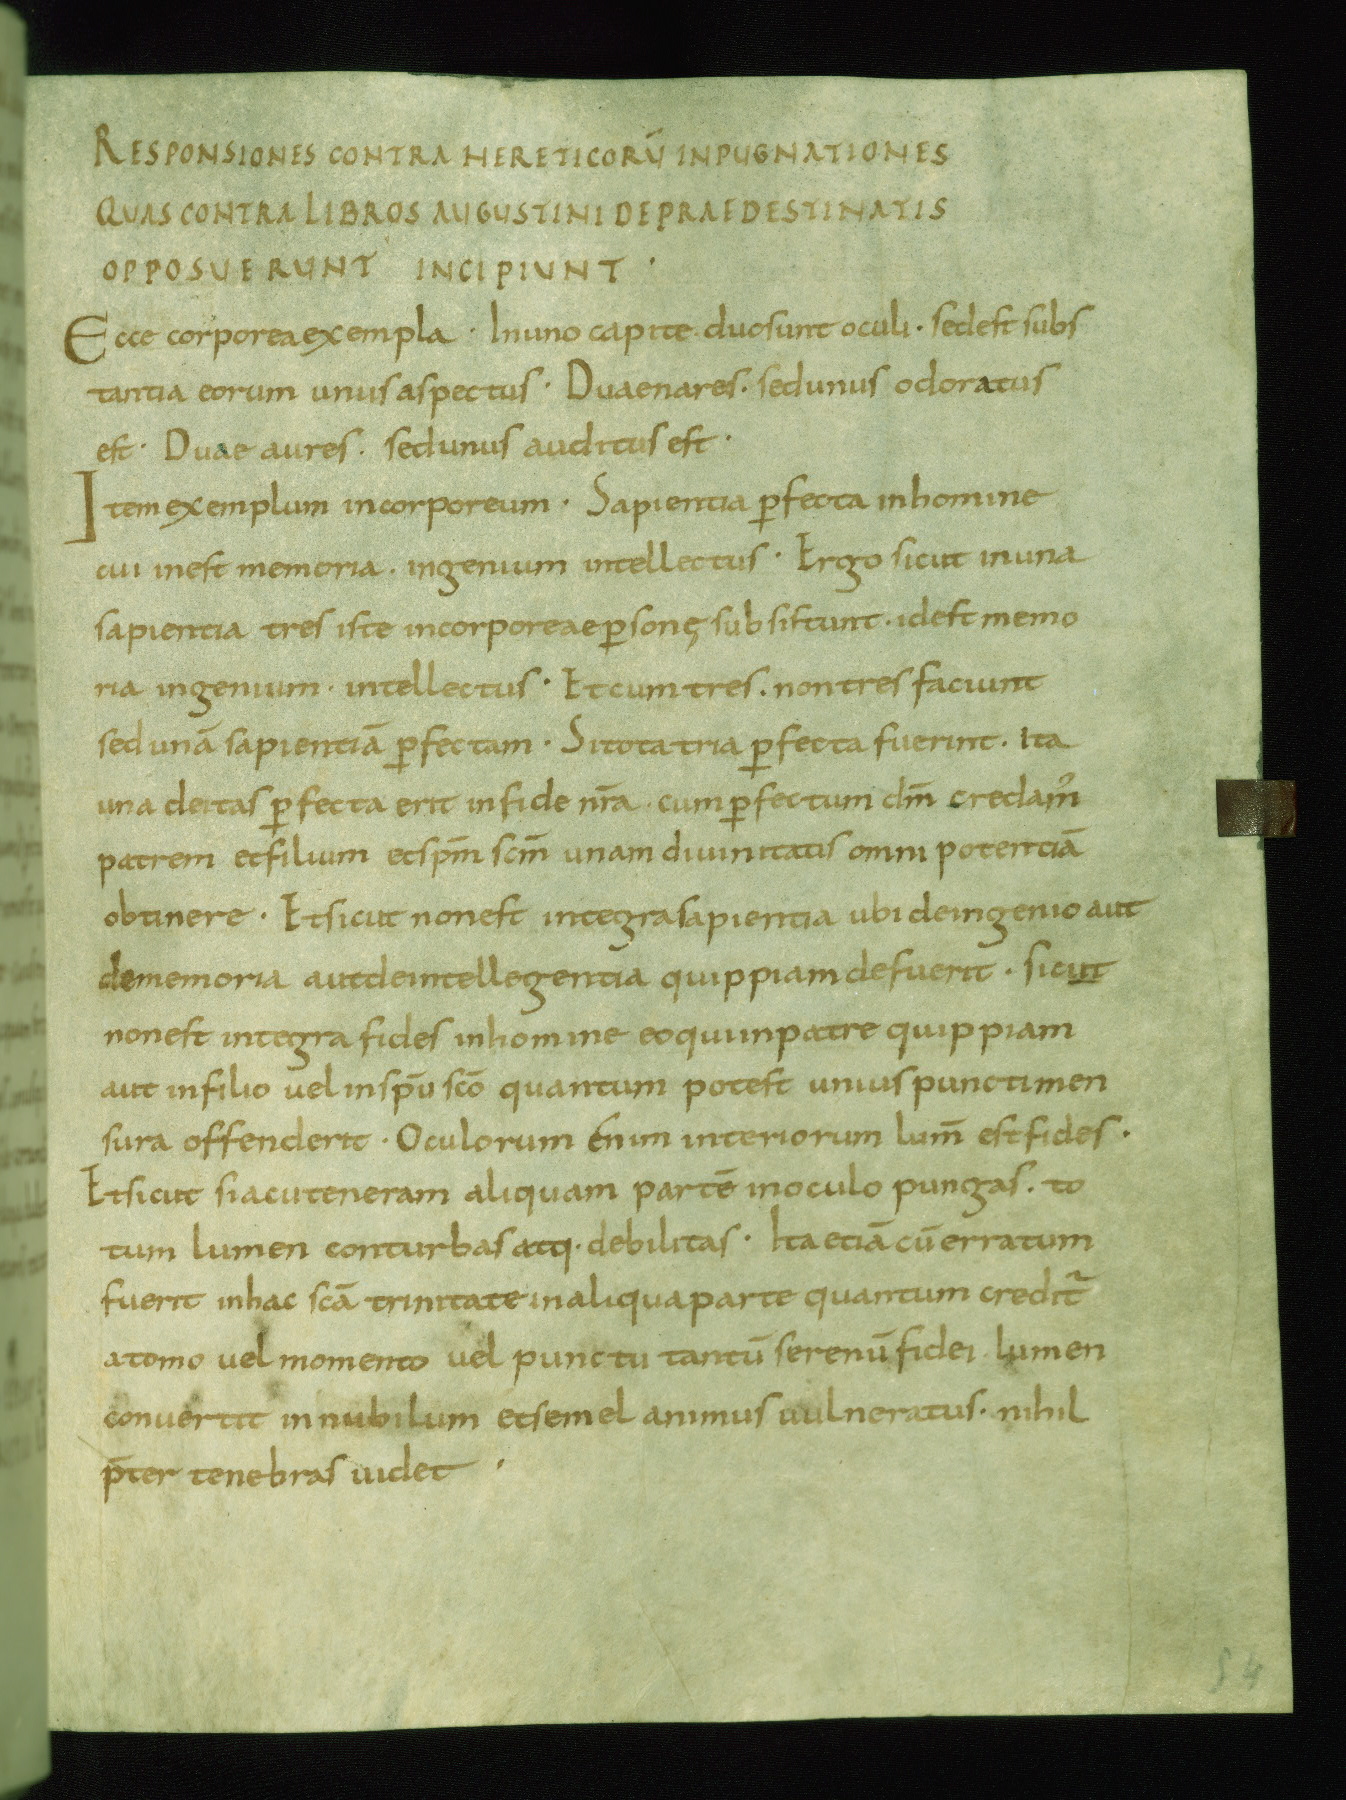 RESPONSIONES CONTRA HERETICORŪ INPUGNATIONES
QUAS CONTRA LIBROS AUGUSTINI DE PRAEDESTINATIS
OPPOSUERUNT INCIPIUNT ·
Ecce corporea exempla · In uno capite duo sunt oculi · sed est subs
tantia eorum unus aspectus · Duae nares · sed unus odoratus
est · Duae aures · sed unus auditus est ·
Item exemplum incorporeum · Sapientia ꝑfecta in homine
cui inest memoria · ingenium intellectus · Ergo sicut in una
sapientia tres iste incorporeae ꝑsonę subsistunt · id est memo
ria ingenium · intellectus · Et cum tres · non tres faciunt
sed unā sapientiā ꝑfectam · Si tota tria ꝑfecta fuerint · Ita
una deitas ꝑfecta erit in fide nr̄a · cum ꝑfectum dm̄ credam᾽
patrem et filium et spm̄ scm̄ unam diuinitatis omnipotentiā
obtinere · Et sicut non est integra sapientia ubi de ingenio aut
de memoria aut de intellegentia quippiam defuerit · sicut
non est integra fides in homine eo qui in patre quippiam
aut in filio uel in spū scō quantum potest unius puncti men
sura offenderit · Oculorum enim interiorum lum̄ est fides ·
Et sicut si acu teneram aliquam partē in oculo pungas · to
tum lumen conturbas atq· debilitas · Ita etiā cū erratum
fuerit in hac scā trinitate in aliqua parte quantum credit᷑
atomo uel momento uel punctu tantū serenū fidei lumen
conuertit in nubilum et semel animus uulneratus · nihil
p̄ter tenebras uidet ·
54